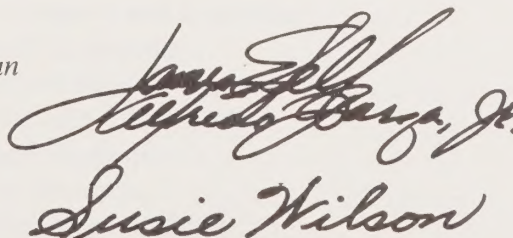 an
James
Alfredo Garza, Jr.
Susie Wilson